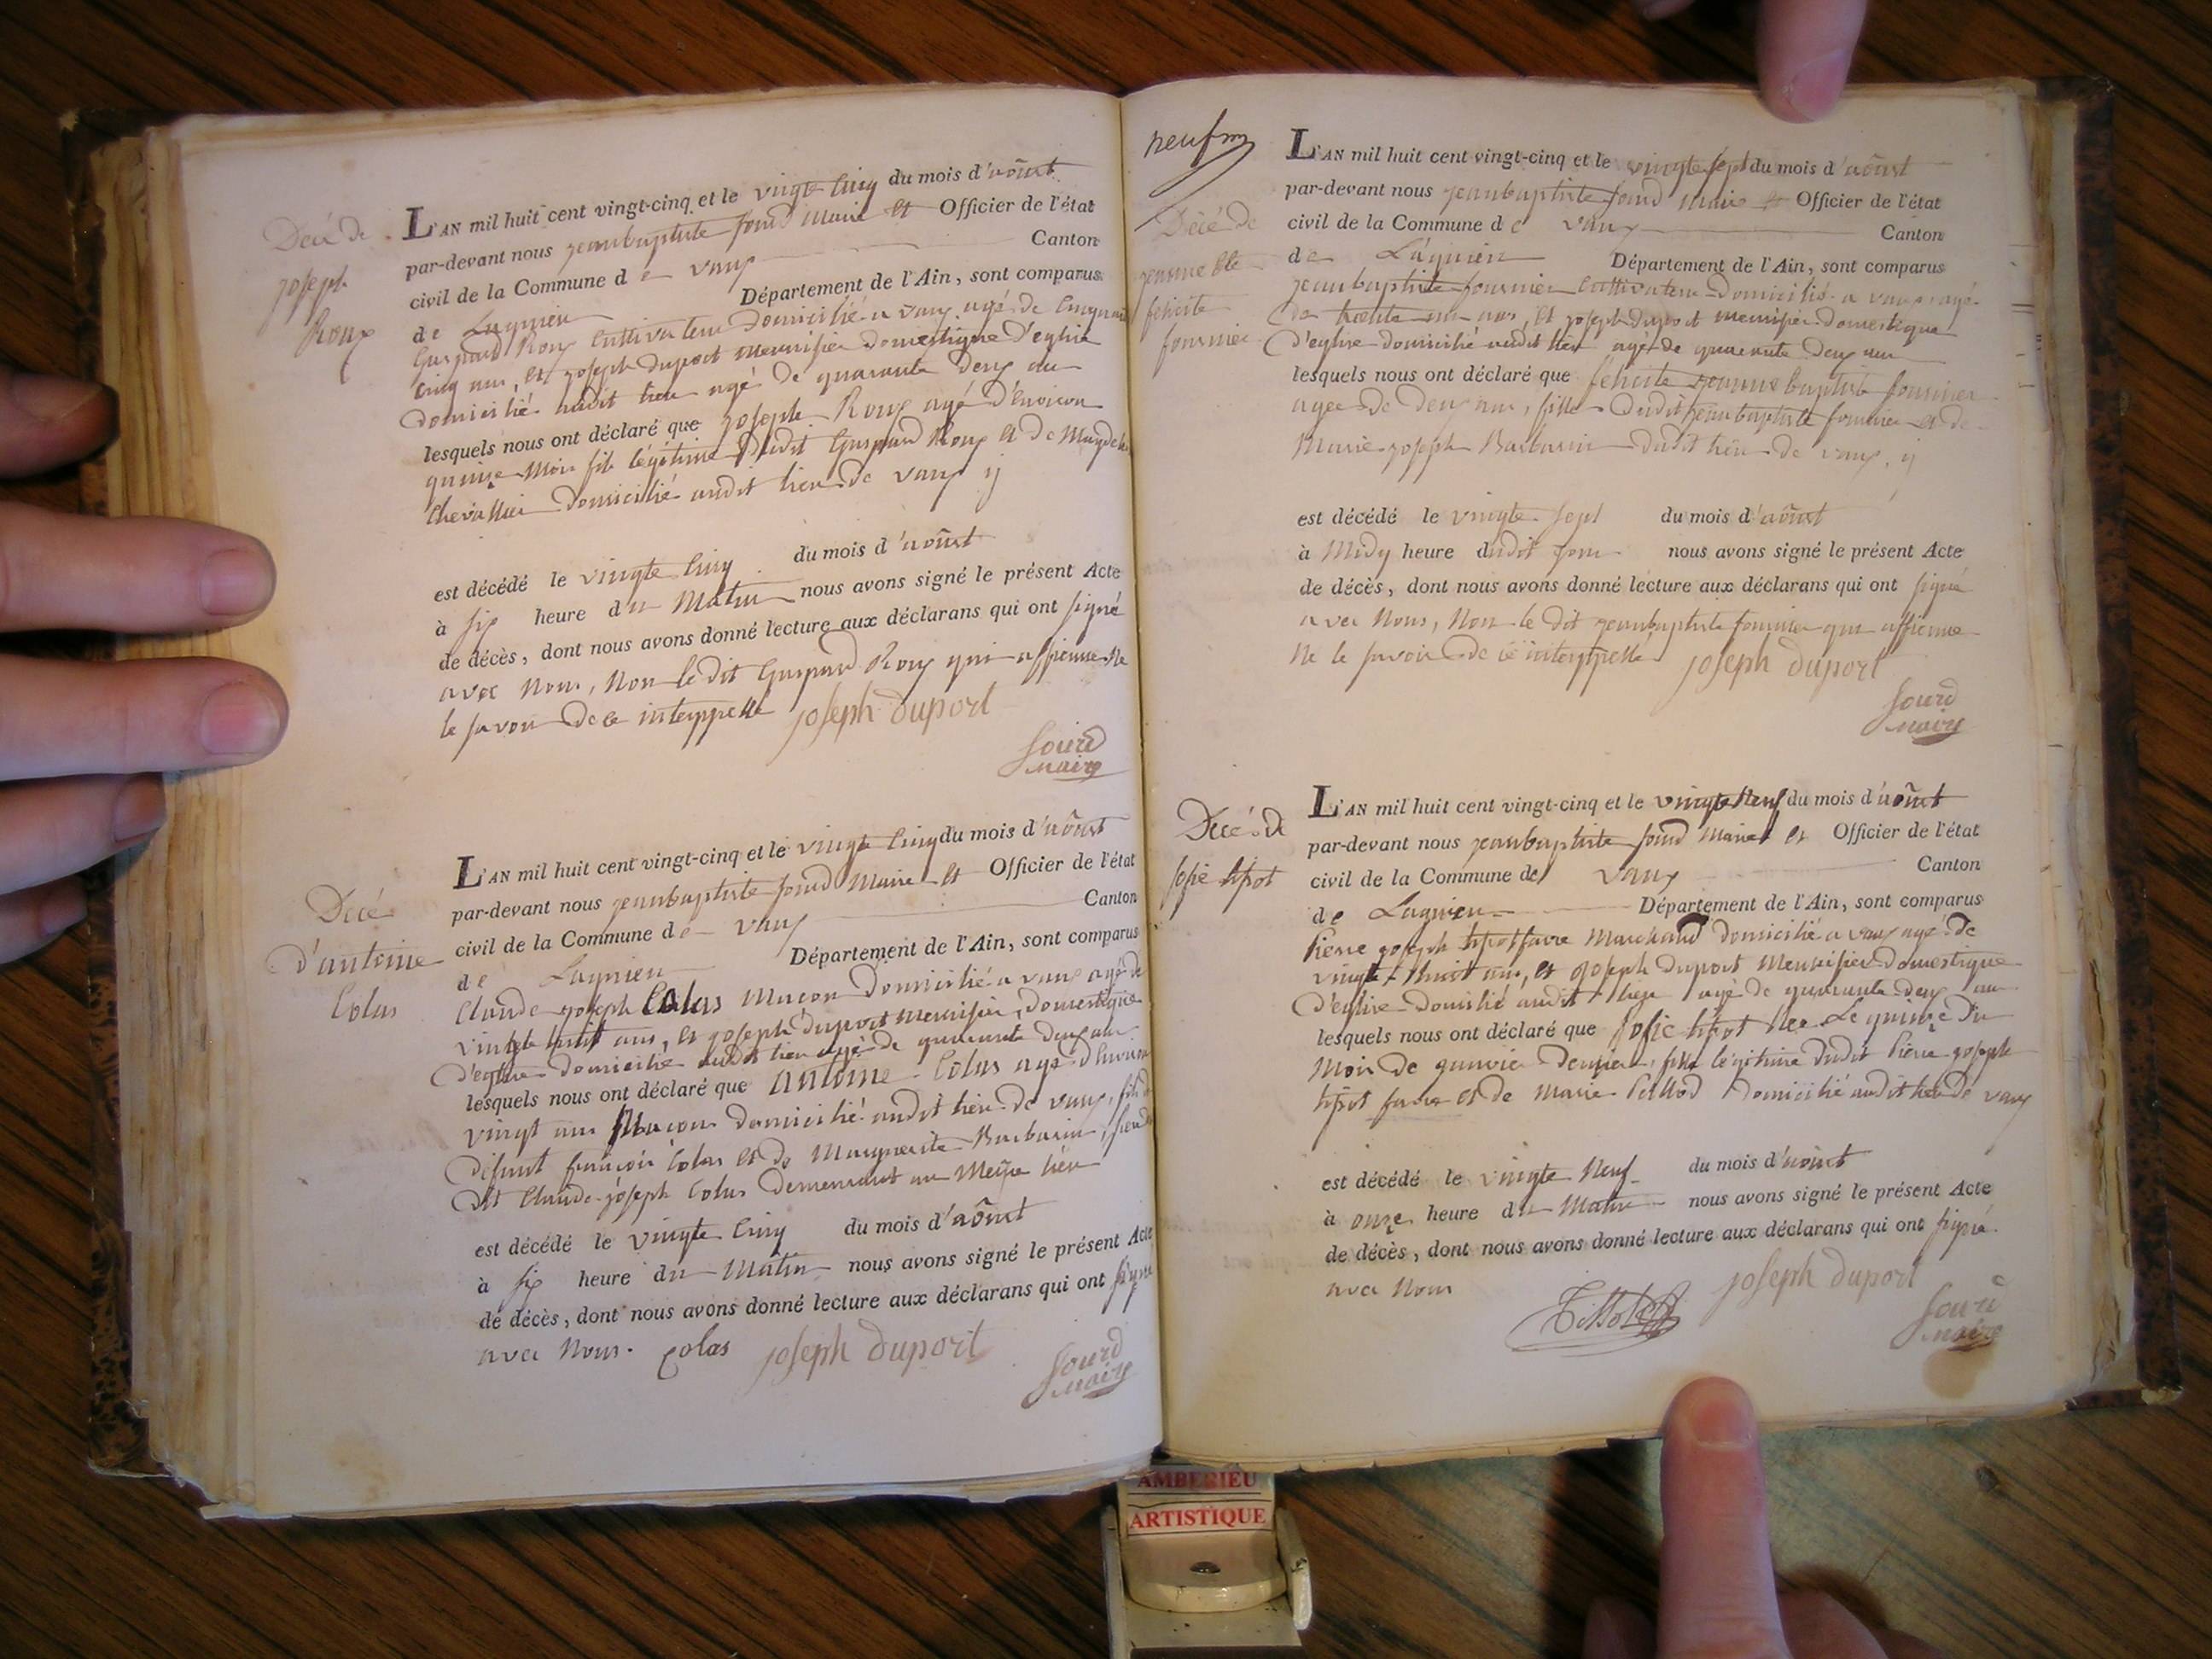 Décé de
joseph
Roux
L'AN mil huit cent vingt-cinq et le vingte cinq du mois d'aôust
par-devant nous jeanbaptiste Maire et Officier de l'état
civil de la Commune de vaux Canton
de Lagnieu Département de l'Ain, sont comparus
Gaspard Roux Cultivateur domicilié a vaux agé de
cinq ans, et joseph duport menuisier domestique d'eglise
domicilié audit lieu agé de quarante deux ans
lesquels nous ont déclaré que joseph Roux agé d'environ
quinze Mois fils légitime dudit Gaspard Roux et de
Chevallier domicilié audit lieu de vaux
est décédé le vingte cinq du mois d'aôust
à six heure du Matin nous avons signé le présent Acte
de décès, dont nous avons donné lecture aux déclarans qui ont signé
avec Nous, Non le dit Gaspard Roux qui affirme Ne
le savoir de ce interppellé joseph duport
Maire
Décé
d'antoine
Colas
L'AN mil huit cent vingt-cinq et le vingte cinq du mois d'aôust
par-devant nous jeanbaptiste Maire et Officier de l'état
civil de la Commune de vaux Canton
de Lagnieu Département de l'Ain, sont comparus
Claude joseph Colas Maçon domicilié a vaux agé de
vingte huit ans, et joseph duport menuisier, domestique
d'eglise domicilié audit lieu agé de quarante deux ans
lesquels nous ont déclaré que antoine Colas agé d'environ
vingt ans Maçon domicilié audit lieu de vaux, fils
défunt françois Colas et de Marguerite Barbarin,
dit Claude joseph Colas demeurant au Même lieu
est décédé le vingte cinq du mois d'aôust
à six heure du Matin nous avons signé le présent Acte
de décès, dont nous avons donné lecture aux déclarans qui ont signé
avec Nous. Colas joseph duport
Maire
neuf
Décé de
jeanne Bte
felicite
fournier
L'AN mil huit cent vingt-cinq et le vingte sept du mois d'aôust
par-devant nous jeanbaptiste Maire et Officier de l'état
civil de la Commune de vaux Canton
de Lagnieu Département de l'Ain, sont comparus
jeanbaptiste fournier Cultivateur domicilié a vaux agé
de trente ans, et joseph duport menuisier domestique
d'eglise domicilié audit lieu agé de quarante deux ans
lesquels nous ont déclaré que félicite jeanne baptiste fournier
agée de deux ans, fille dudit jeanbaptiste fournier et de
Marie joseph Barbarin dudit lieu de vaux,
est décédé le vingte sept du mois d'aôust
à Midy heure dudit jour nous avons signé le présent Acte
de décès, dont nous avons donné lecture aux déclarans qui ont signé
avec Nous, Non le dit jeanbaptiste fournier qui affirme
Ne le savoir de ce interppellé joseph duport
Maire
Decé de
sofie tipot
L'AN mil huit cent vingt-cinq et le vingte Neuf du mois d'aôust
par-devant nous jeanbaptiste Maire et Officier de l'état
civil de la Commune de vaux Canton
de Lagnieu Département de l'Ain, sont comparus
Pierre joseph Marchand domicilié a vaux agé de
vingte huit ans, et joseph duport Menuisier domestique
d'eglise Domilié audit lieu agé de quarante deux ans
lesquels nous ont déclaré que sofie tipot Née Le quinze du
Mois de janvier dernier, fille légitime dudit Pierre joseph
et de Marie domicilié audit lieu de vaux
est décédé le vingte Neuf du mois d'aôust
à onze heure du Matin nous avons signé le présent Acte
de décès, dont nous avons donné lecture aux déclarans qui ont signé
avec Nous
joseph duport
Maire
AMBERIEU
ARTISTIQUE